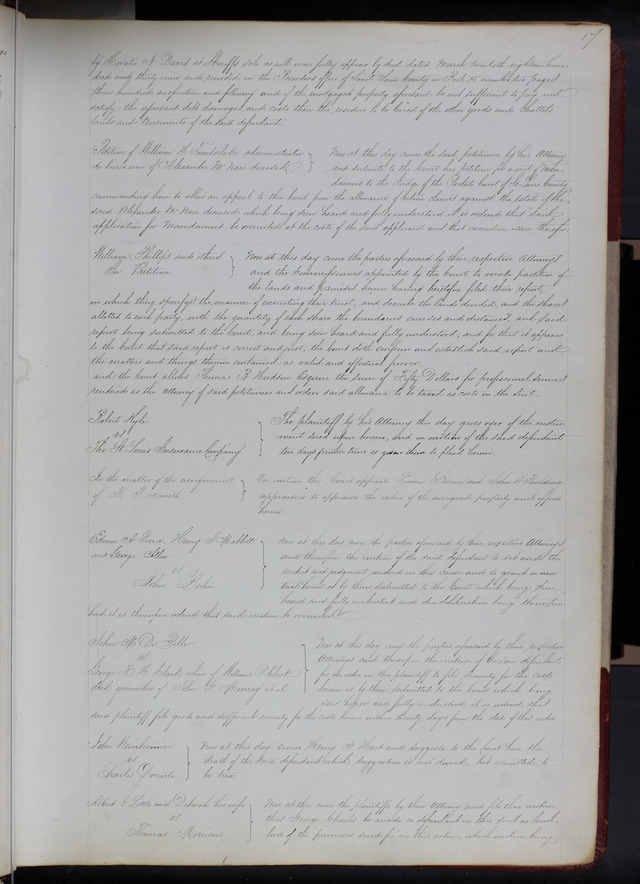 17
by Horatio N Davis at Sheriffs sale as will more fully appear by deed dated March twentieth eighteen hun-
dred and thirty nine and recorded in the Recorders office of Saint Louis County in Book numbered paged
three hundred and following and of the mortgaged property aforesaid be not sufficient to pay and
satisfy the aforesaid debt damages and costs then the residue to be levied of the other goods and chattels
lands and tenements of the said defendant.
Petition of William H administrator } Now at this day comes the said petitioner by his Attorney
de bonis non of Alexander McNair deceased and submits to the Court his petition for a writ of Man-
damus to the Judge of the Probate Court of St Louis County
commanding him to allow an appeal to this Court from the allowance of certain claims against the Estate of the
said Alexander McNair deceased which being seen heard and fully understood it is ordered that said
application for Mandamus be overruled at the costs of the said applicant and that execution issue therefor
William Phillips and others } Now at this day come the parties aforesaid by their respective Attorneys
In Partition and the Commissioners appointed by the Court to make partition of
the lands and premises herein having heretofore filed their report,
in which they specify the manner of executing their trust, and describe the lands divided, and the shares
allotted to each party, with the quantity of each share the boundaries courses and distances, and said
report being submitted to the Court, and being seen heard and fully understood, and for that it appears
to the Court that said report is correct and just, the Court doth confirm and establish said report and
the matters and things therein contained as valid and effectual
and the Court allows Thomas B Hudson Esquire the sum of Fifty Dollars for professional services
rendered as the attorney of said petitioners and orders said allowance to be taxed as costs in the suit.
Robert Kyle } The plaintiff by his Attorney this day gives oyer of the instru-
vs ment sued upon herein, and on motion of the said defendant
The St Louis Insurance Company ten days further time is given them to plead herein.
In the matter of the assignment } On motion the Court appoints and John D
of Smith appraisers to appraise the value of the assigned property and effects
herein
Edwin A Lewis, Henry S Mabbett } Now at this day come the parties aforesaid by their respective Attorneys
and George Allen and thereupon the motion of the said defendant to set aside the
vs verdict and judgment rendered in this cause and to grant a new
John trial herein is by them submitted to the Court which being seen
heard and fully understood and due deliberation being thereupon
had it is thereupon ordered that said motion be overruled
John M De } Now at this day come the parties aforesaid by their respective
vs Attorneys and thereupon the motion of the said defendant
George R H Clark of William P Clark for an order on the plaintiff to file security for the costs
decd garnishee of John D Murray et al herein is by them submitted to the Court which being
seen heard and fully understood it is ordered that
said plaintiff file good and sufficient security for the costs herein within twenty days from the date of this order
John } Now at this day comes Henry W Hart and suggests to the Court here the
vs death of the said defendant which suggestion is not denied but admitted to
Charles be true
Albert G Little and Deborah his wife } Now at this day come the plaintiffs by their Attorney and file their motion
vs that George Charles be made co defendant in this suit as land-
Thomas Morrison lord of the premises sued for in this action, which motion being